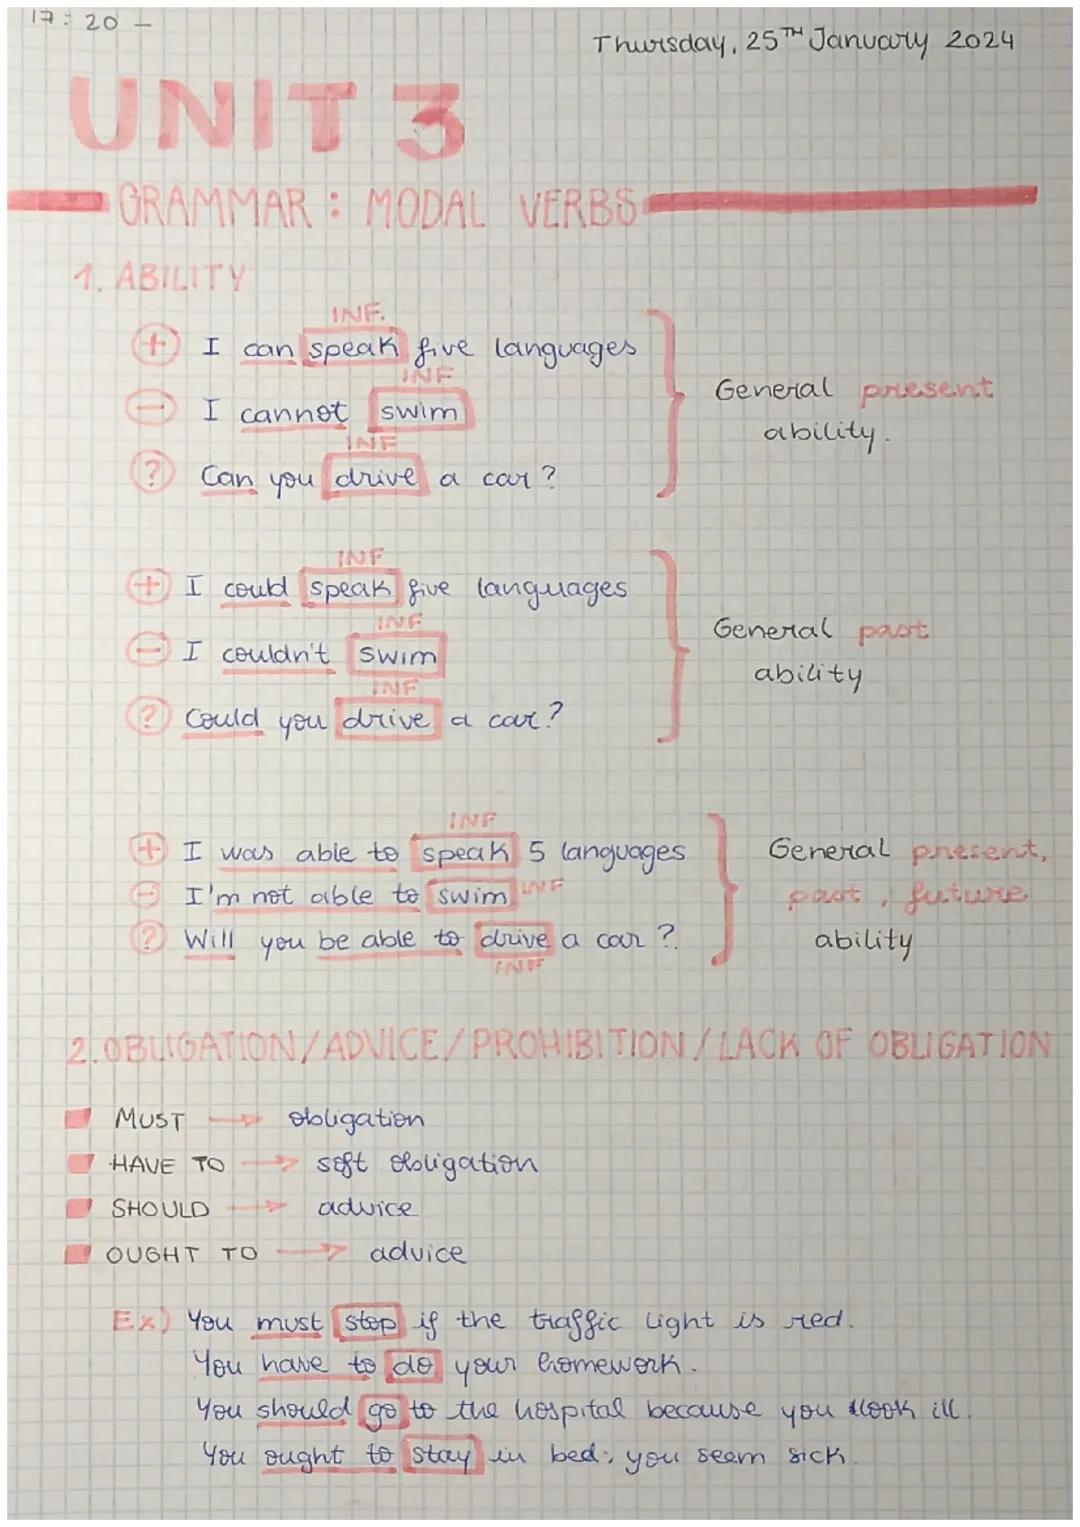 17:20 -
Thursday, 25TH January 2024
UNIT 3
GRAMMAR: MODAL VERBS
1. ABILITY
INF.
+ I can speak five languages
INF
- I cannot swim
General present
ability.
INF
? Can you drive a car?
INF
+ I could speak five languages
INF
- I couldn't swim
General past
ability
INF
? Could you drive a car?
INF
+ I was able to speak 5 languages
General present,
- I'm not able to swim INF
past, future
? Will you be able to drive a car?
ability
INF
2. OBLIGATION/ADVICE/PROHIBITION/LACK OF OBLIGATION
MUST → obligation
HAVE TO → soft obligation
SHOULD → advice
OUGHT TO → advice
Ex) You must stop if the traffic light is red.
You have to do your homework.
You should go to the hospital because you look ill.
You ought to stay in bed; you seem sick.